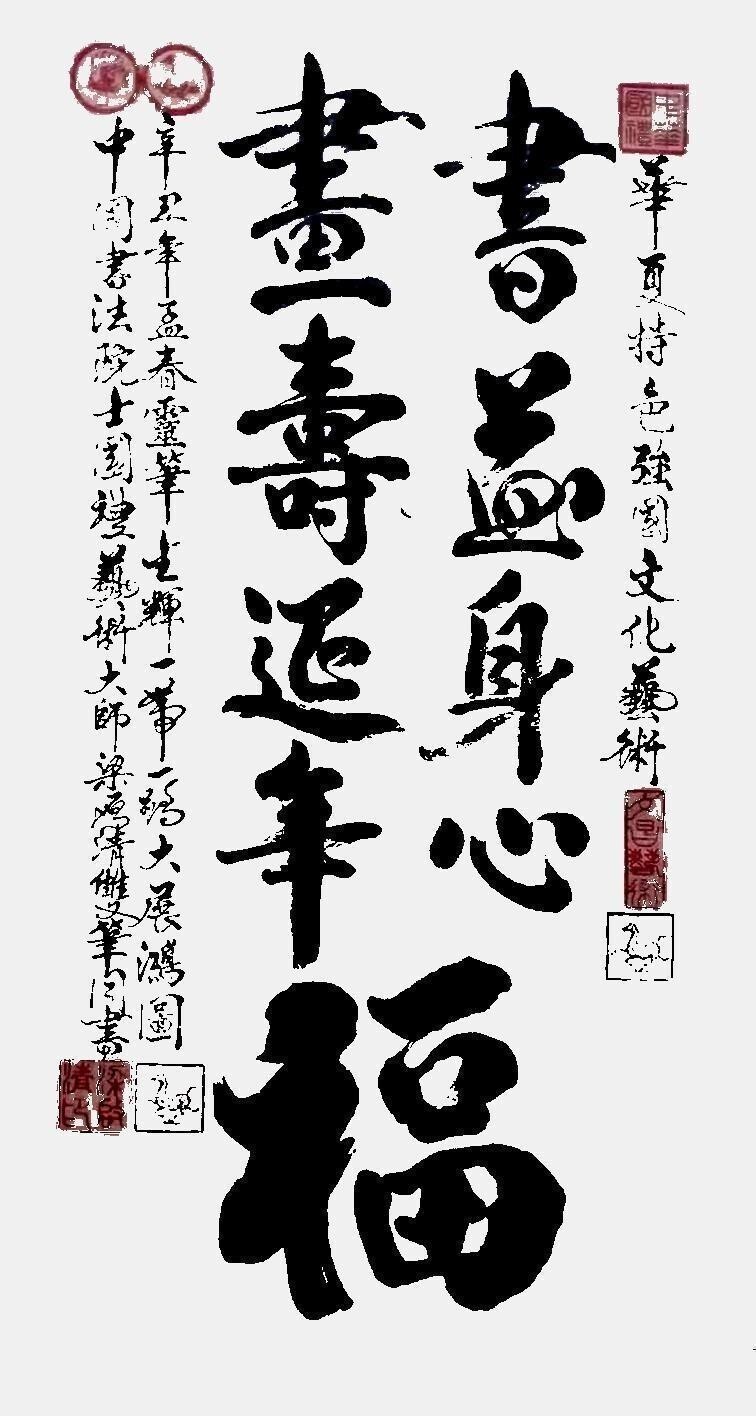 華夏特色強國文化藝術
書益身心
畫壽延年
福
辛丑年孟春靈筆生輝一帶一路大展鴻圖
中國書法院士國禮藝術大師梁 清雙筆同書